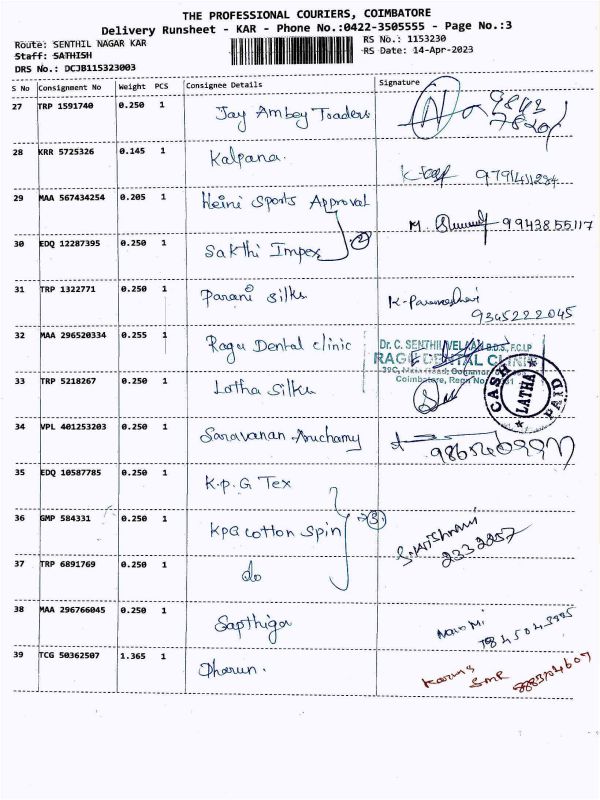 THE PROFESSIONAL COURIERS, COIMBATORE
Delivery Runsheet - KAR - Phone No.:0422-3505555 - Page No.:3
Route: SENTHIL NAGAR KAR
RS No.: 1153230
Staff: SATHISH
RS Date: 14-Apr-2023
DRS No.: DCJB115323003
S No Consignment No Weight PCS Consignee Details Signature
27 TRP 1591740 0.250 1 Jay Ambey Traders
28 KRR 5725326 0.145 1 Kalpana.
29 MAA 567434254 0.205 1 Heini Sports Approval
M. 9943855117
30 EDQ 12287395 0.250 1 Sakthi Impex 2
31 TRP 1322771 0.250 1 Parani Silks K-Parameshwari
9345222045
32 MAA 296520334 0.255 1 Ragu Dental clinic
Dr. C. SENTHIL VELLAN B.D.S., F.C.I.P
RAGU DENTAL CLINIC
Coimbatore, Regn No
33 TRP 5218267 0.250 1 Latha Silks
CASH PAID
LATHA
34 VPL 401253203 0.250 1 Saravanan Aruchamy
35 EDQ 10587785 0.250 1 K.P.G Tex
36 GMP 584331 0.250 1 KPG Cotton Spin 3
S. Krishnan
2332857
37 TRP 6891769 0.250 1 do
38 MAA 296766045 0.250 1 Sapthiga
39 TCG 50362507 1.365 1 Dharun.
8883704607